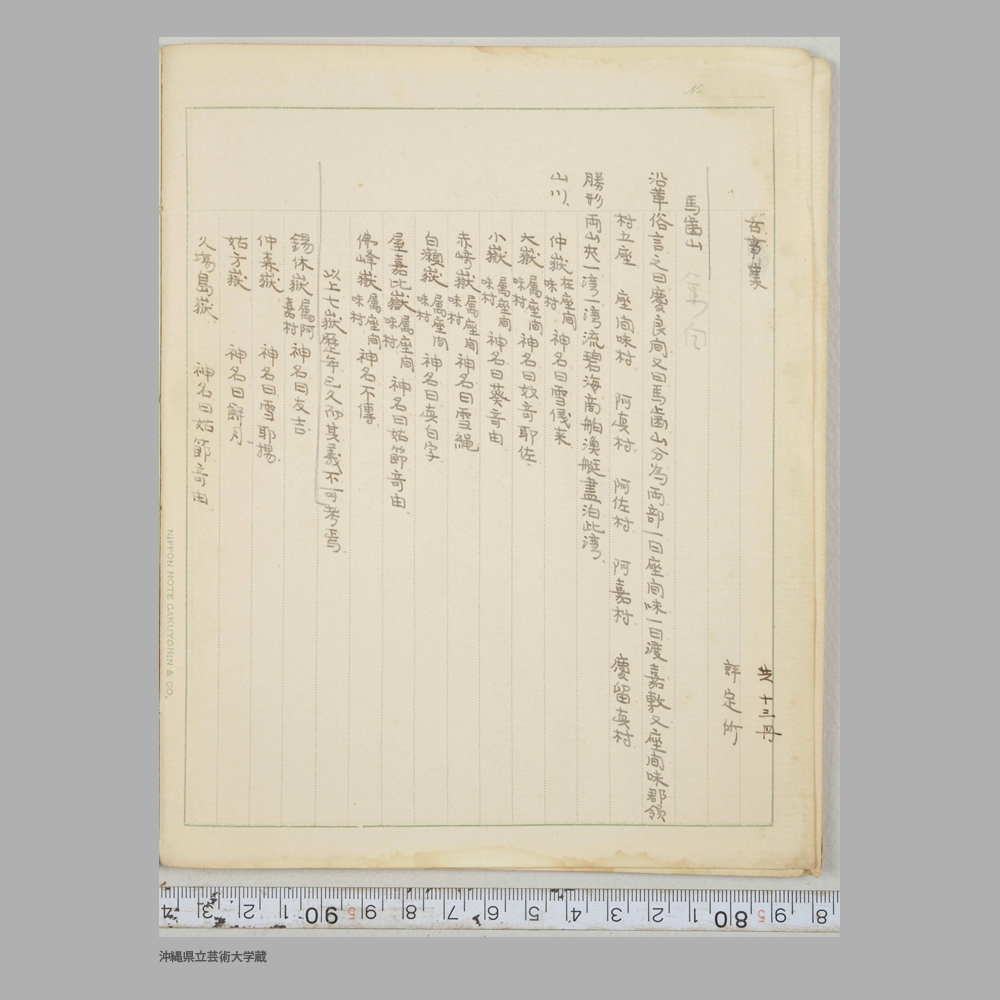 No.
古事集
共十三冊
評定所
馬齒山
沿革俗言之曰慶良間又曰馬齒山分為両部一曰座間味一曰渡嘉敷又座間味郡領
村五座 座間味村 阿真村 阿佐村 阿嘉村 慶留真村
勝形 両山夾一湾一湾流碧海商船漁艇盡泊此湾
山川
仲嶽在座間味村 神名曰雪儀来
大嶽属座間味村 神名曰妙奇耶佐
小嶽属座間味村 神名曰葵奇由
赤崎嶽属座間味村 神名曰雪縄
白瀬嶽属座間味村 神名曰真白字
屋嘉比嶽属座間味村 神名曰姑節奇由
佛峰嶽属座間味村 神名不傳
以上七嶽歴年已久而其義不可考焉
錫休嶽属阿嘉村 神名曰友吉
仲森嶽 神名曰雪耶揚
姑方嶽 神名曰餅月
久場島嶽 神名曰姑節奇由
NIPPON NOTE GAKUYOHIN & CO.
4 3 2 1 90 5 9 8 7 6 5 4 3 2 1 80 5 9 8
沖縄県立芸術大学蔵